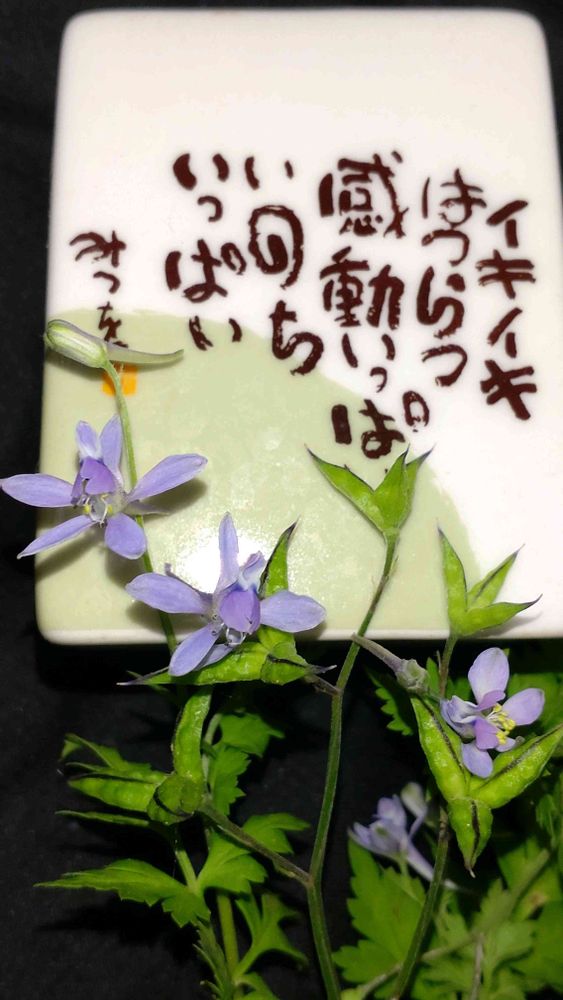 イキイキ
はつらつ
感動いっぱ
いのち
いっぱい
みつを